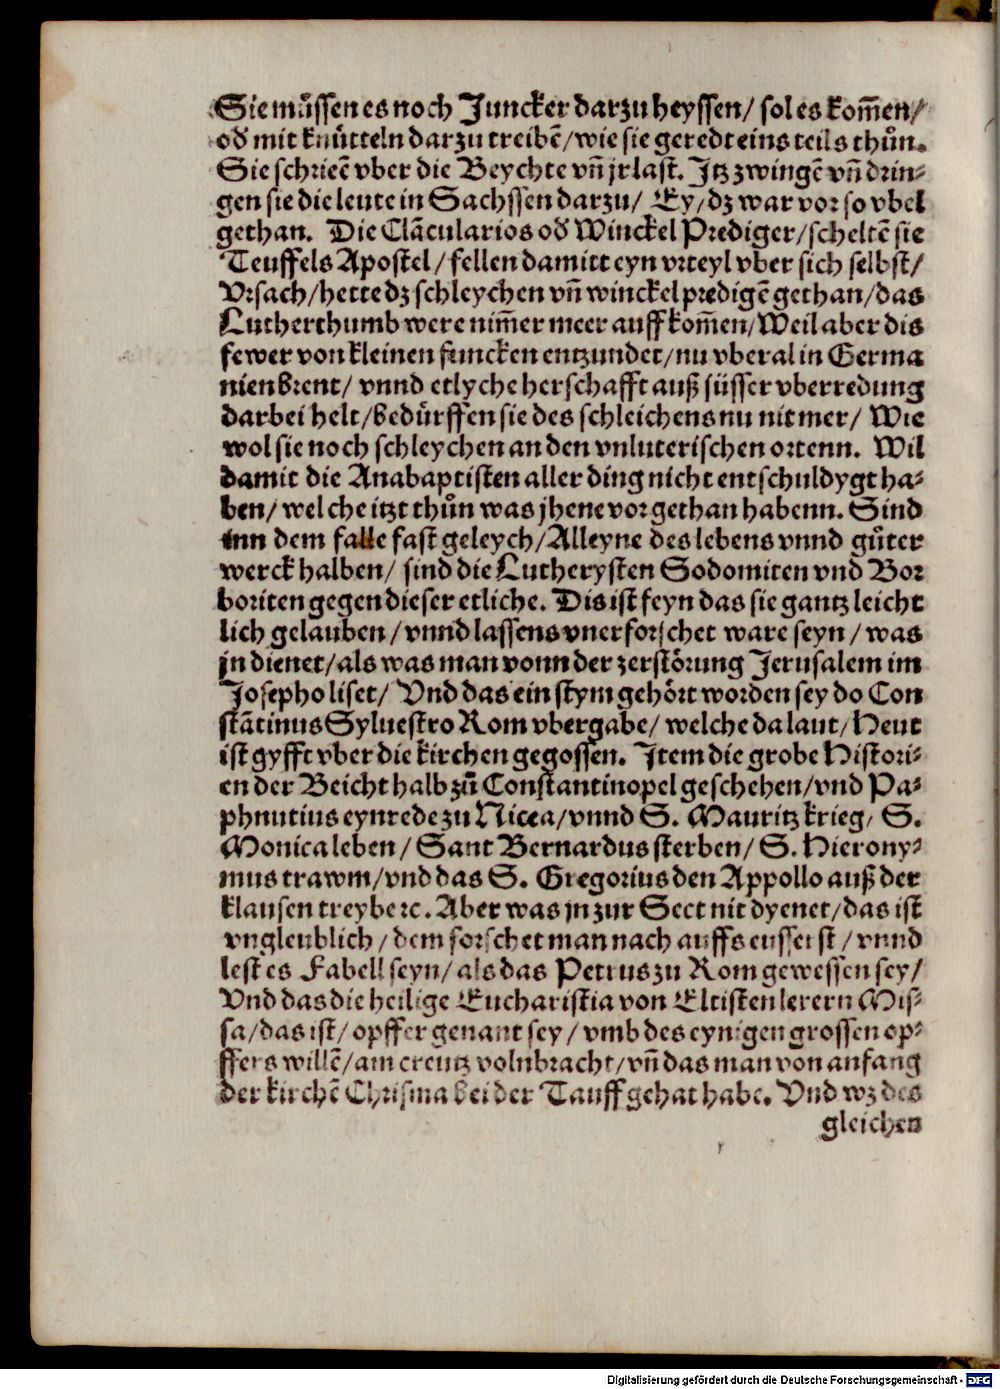 Sie můssen es noch Juncker darzu heyssen/ sol es kom̄en/
od' mit knůtteln darzu treibē/wie sie geredt eins teils thůn.
Sie schrieē vber die Beychte vn̄ jr last. Itz zwingē vn̄ drin⸗
gen sie die leute in Sachssen darzu/ Ey/dz war vor so vbel
gethan. Die Clācularios od' Winckel Prediger/scheltē sie
Teuffels Apostel/fellen damitt eyn vrteyl vber sich selbst/
Vrsach/hette dz schleychen vn̄ winckel predigē gethan/das
Lutherthumb were nim̄er meer auff kom̄en/Weil aber dis
fewer von kleinen funcken entzundet/nu vberal in Germa
nien brent/ vnnd etlyche herschafft auß süsser vberredung
darbei helt/bedürffen sie des schleichens nu nit mer/ Wie
wol sie noch schleychen an den vnluterischen ortenn. Wil
damit die Anabaptisten aller ding nicht entschuldygt ha⸗
ben/ welche itzt thůn was jhene vor gethan habenn. Sind
inn dem falle fast geleych/Alleyne des lebens vnnd gůter
werck halben/ sind die Lutherysten Sodomiten vnd Bor
boriten gegen dieser etliche. Dis ist feyn das sie gantz leicht
lich gelauben/vnnd lassens vnerforschet ware seyn/was
jn dienet/als was man vonn der zerstörung Jerusalem im
Josepho liset/ Vnd das ein stym gehört worden sey do Con
stātinus Syluestro Rom vbergabe/ welche da laut/Heut
ist gyfft vber die kirchen gegossen. Item die grobe Histori⸗
en der Beicht halb zů Constantinopel geschehen/vnd Pa⸗
phnutius eynrede zu Nicea/vnnd S. Mauritz krieg/ S.
Monica leben/ Sant Bernardus sterben/ S. Hierony⸗
mus trawm/vnd das S. Gregorius den Appollo auß der
klausen treybe ꝛc. Aber was jn zur Sect nit dyenet/das ist
vngleublich/dem forschet man nach auffs eusserst/vnnd
lest es Fabell seyn/als das Petrus zu Rom gewessen sey/
Vnd das die heilige Eucharistia von Eltisten lerern Mis⸗
sa/das ist/opffer genant sey/vmb des eynigen grossen op⸗
ffers willē/am creutz volnbracht/vn̄ das man von anfang
der kirchē Chrisma bei der Tauff gehat habe. Vnd wz des
gleichen
Digitalisierung gefördert durch die Deutsche Forschungsgemeinschaft - DFG